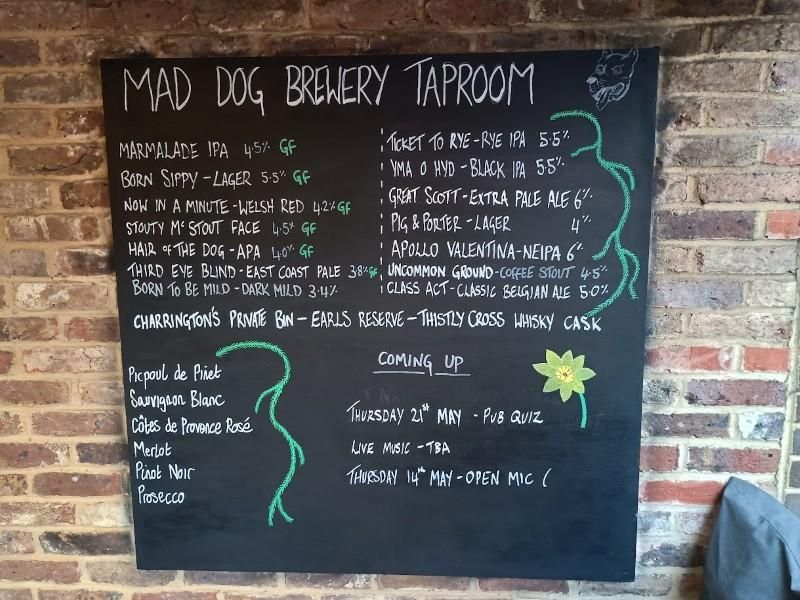 MAD DOG BREWERY TAPROOM
MARMALADE IPA 4.5% GF
BORN SIPPY - LAGER 5.5% GF
NOW IN A MINUTE - WELSH RED 4.2% GF
STOUTY Mc STOUT FACE 4.5% GF
HAIR OF THE DOG - APA 4.0% GF
THIRD EYE BLIND - EAST COAST PALE 3.8% GF
BORN TO BE MILD - DARK MILD 3.4%
TICKET TO RYE - RYE IPA 5.5%
YMA O HYD - BLACK IPA 5.5%
GREAT SCOTT - EXTRA PALE ALE 6%
PIG & PORTER - LAGER 4%
APOLLO VALENTINA - NEIPA 6%
UNCOMMON GROUND - COFFEE STOUT 4.5%
CLASS ACT - CLASSIC BELGIAN ALE 5.0%
CHARRINGTON'S PRIVATE BIN - EARLS RESERVE - THISTLY CROSS WHISKY CASK
Picpoul de Pinet
Sauvignon Blanc
Côtes de Provence Rosé
Merlot
Pinot Noir
Prosecco
COMING UP
THURSDAY 21st MAY - PUB QUIZ
LIVE MUSIC - TBA
THURSDAY 14th MAY - OPEN MIC (